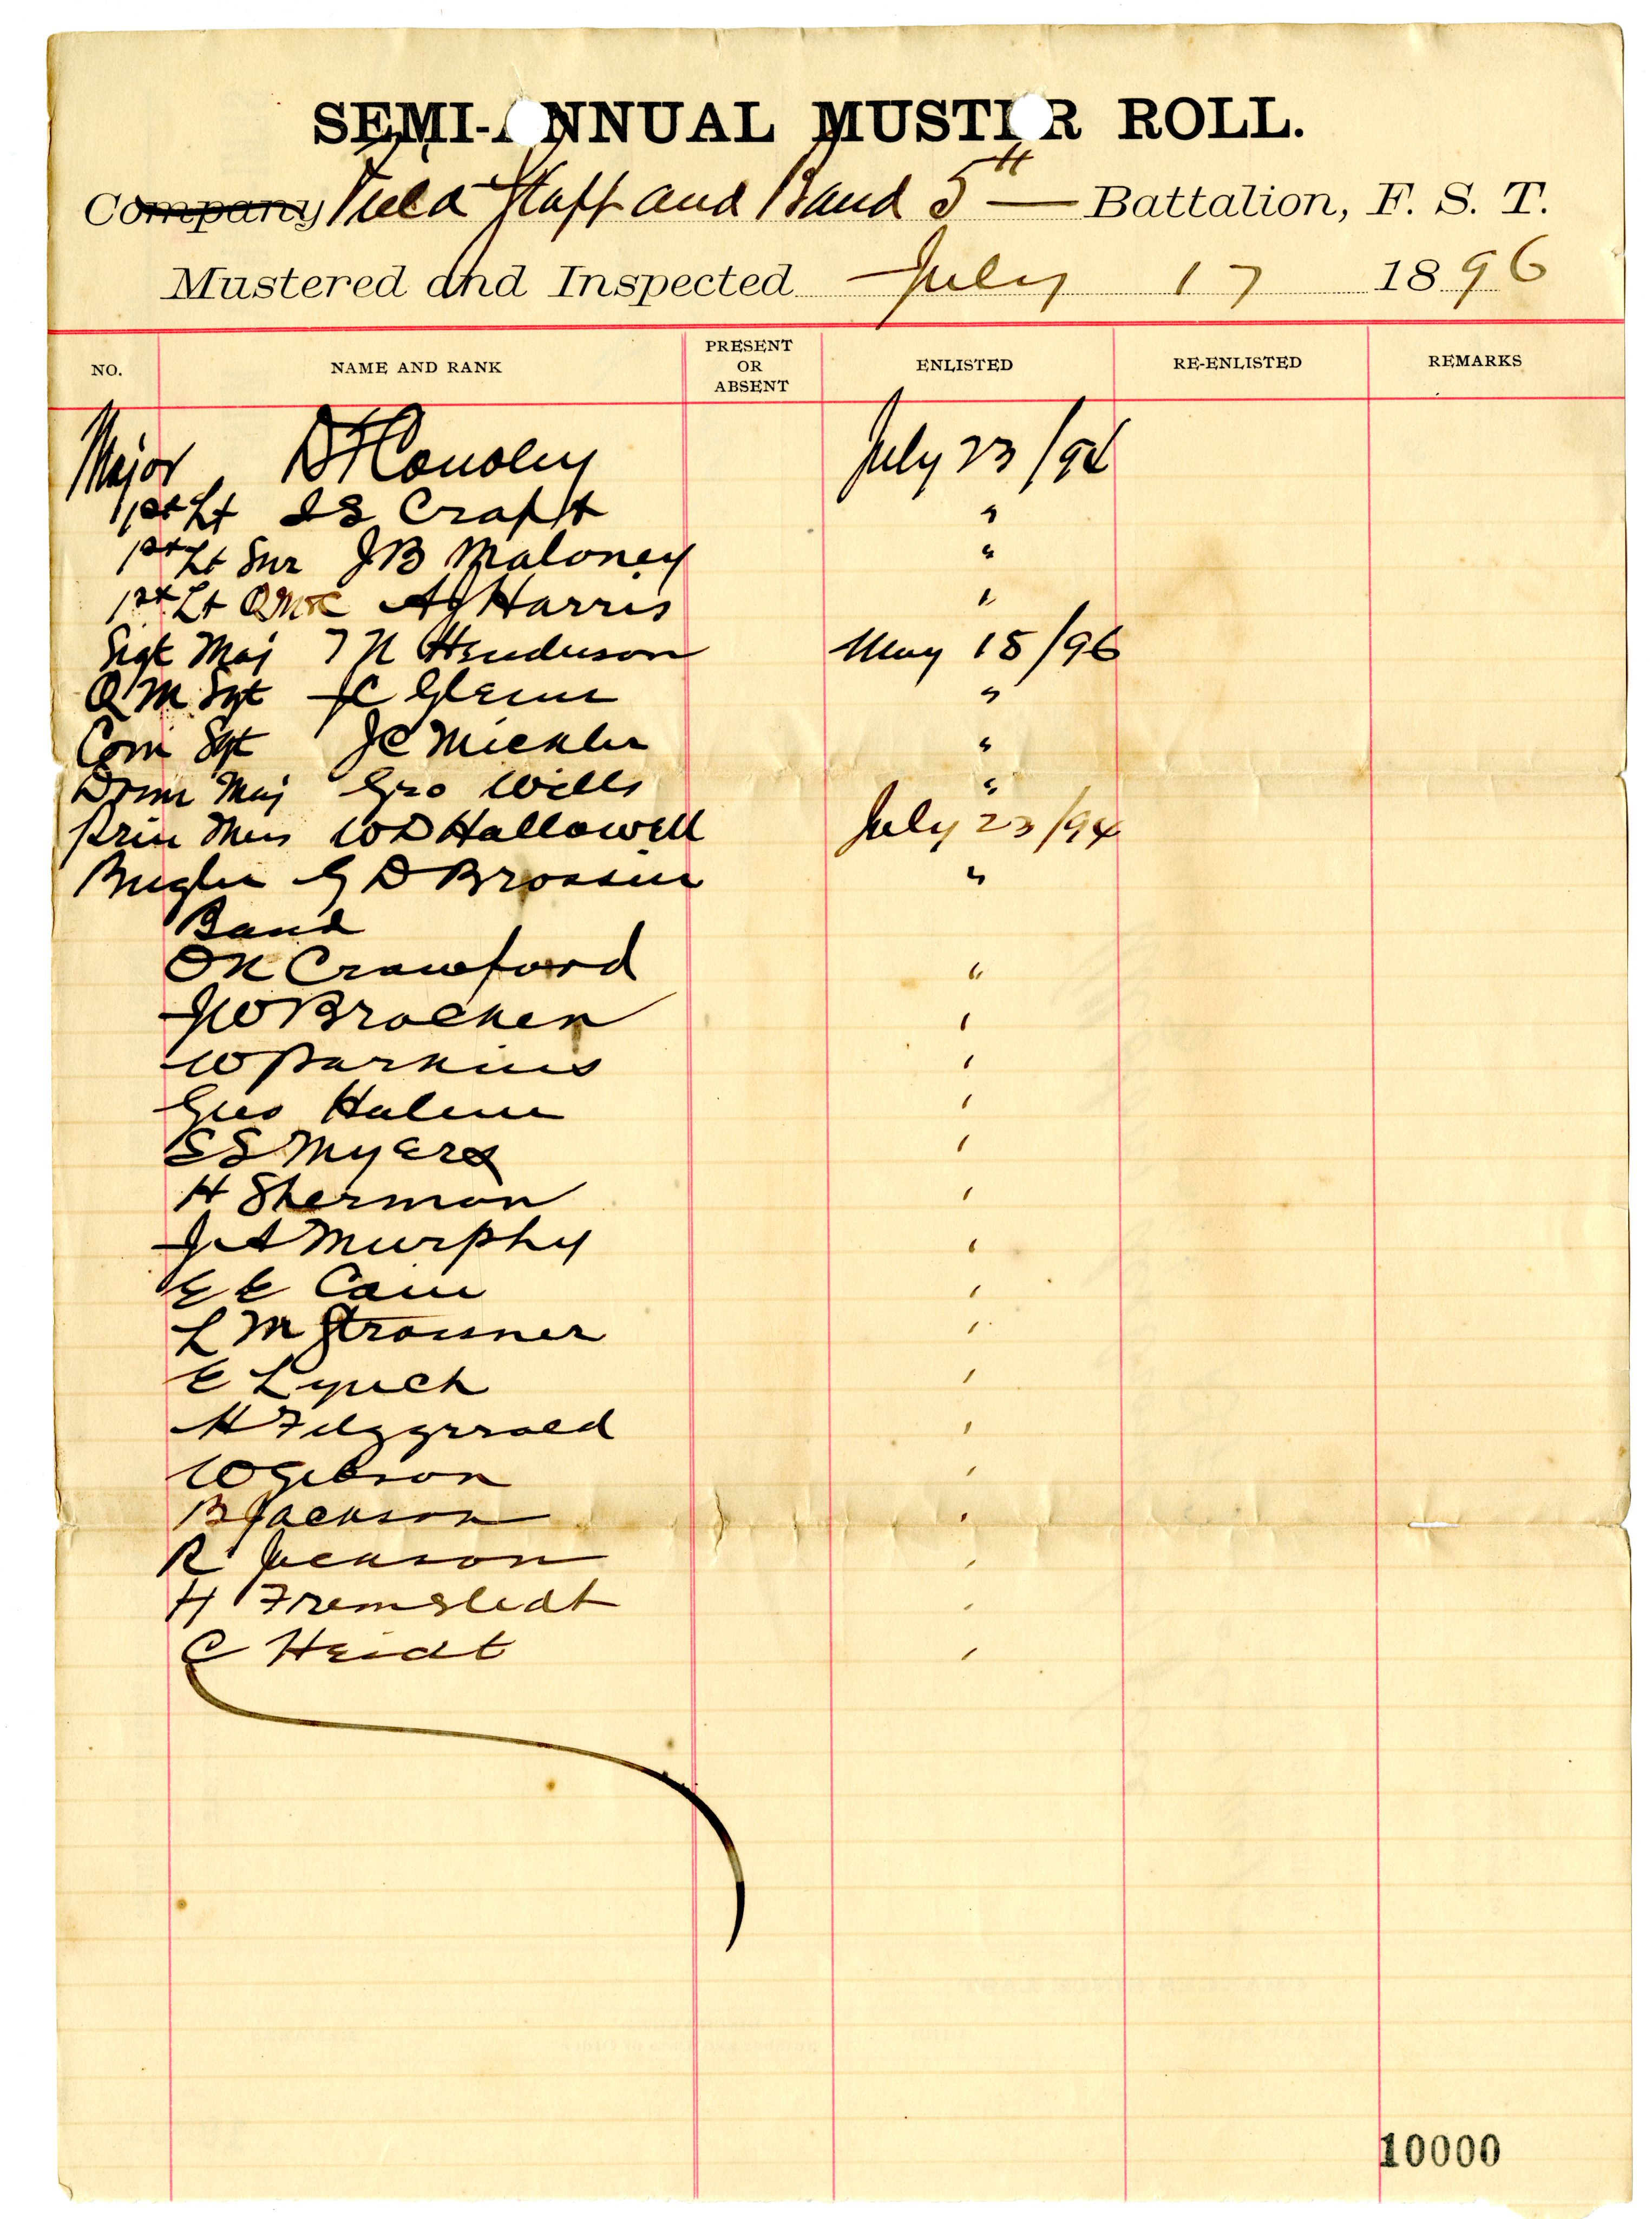 SEMI-ANNUAL MUSTER ROLL.
Company Field Staff and Band 5th — Battalion, F. S. T.
Mustered and Inspected July 17 1896
NO. NAME AND RANK PRESENT OR ABSENT ENLISTED RE-ENLISTED REMARKS
Major D F Conoley July 23/94
1st Lt I S Craft "
1st Lt Sur J B Maloney "
1st Lt Q M & C A J Harris "
Sigt Maj T N Henderson May 15/96
Q M Sgt J C Glenn "
Com Sgt J C Mickler "
Drum Maj Geo Wills "
Prin Mus W D Hallowell July 23/94
Bugler G D Brossier "
Band
O N Crawford "
J W Bracken '
W Parkins '
Geo '
S S Myers '
H Sherman '
J A Murphy '
E E Cain '
L M Strausner '
E Lynch '
H Fitzgerrald '
W Gibson '
B Jackson '
R Jackson '
H Fremstedt '
C Heidt '
10000